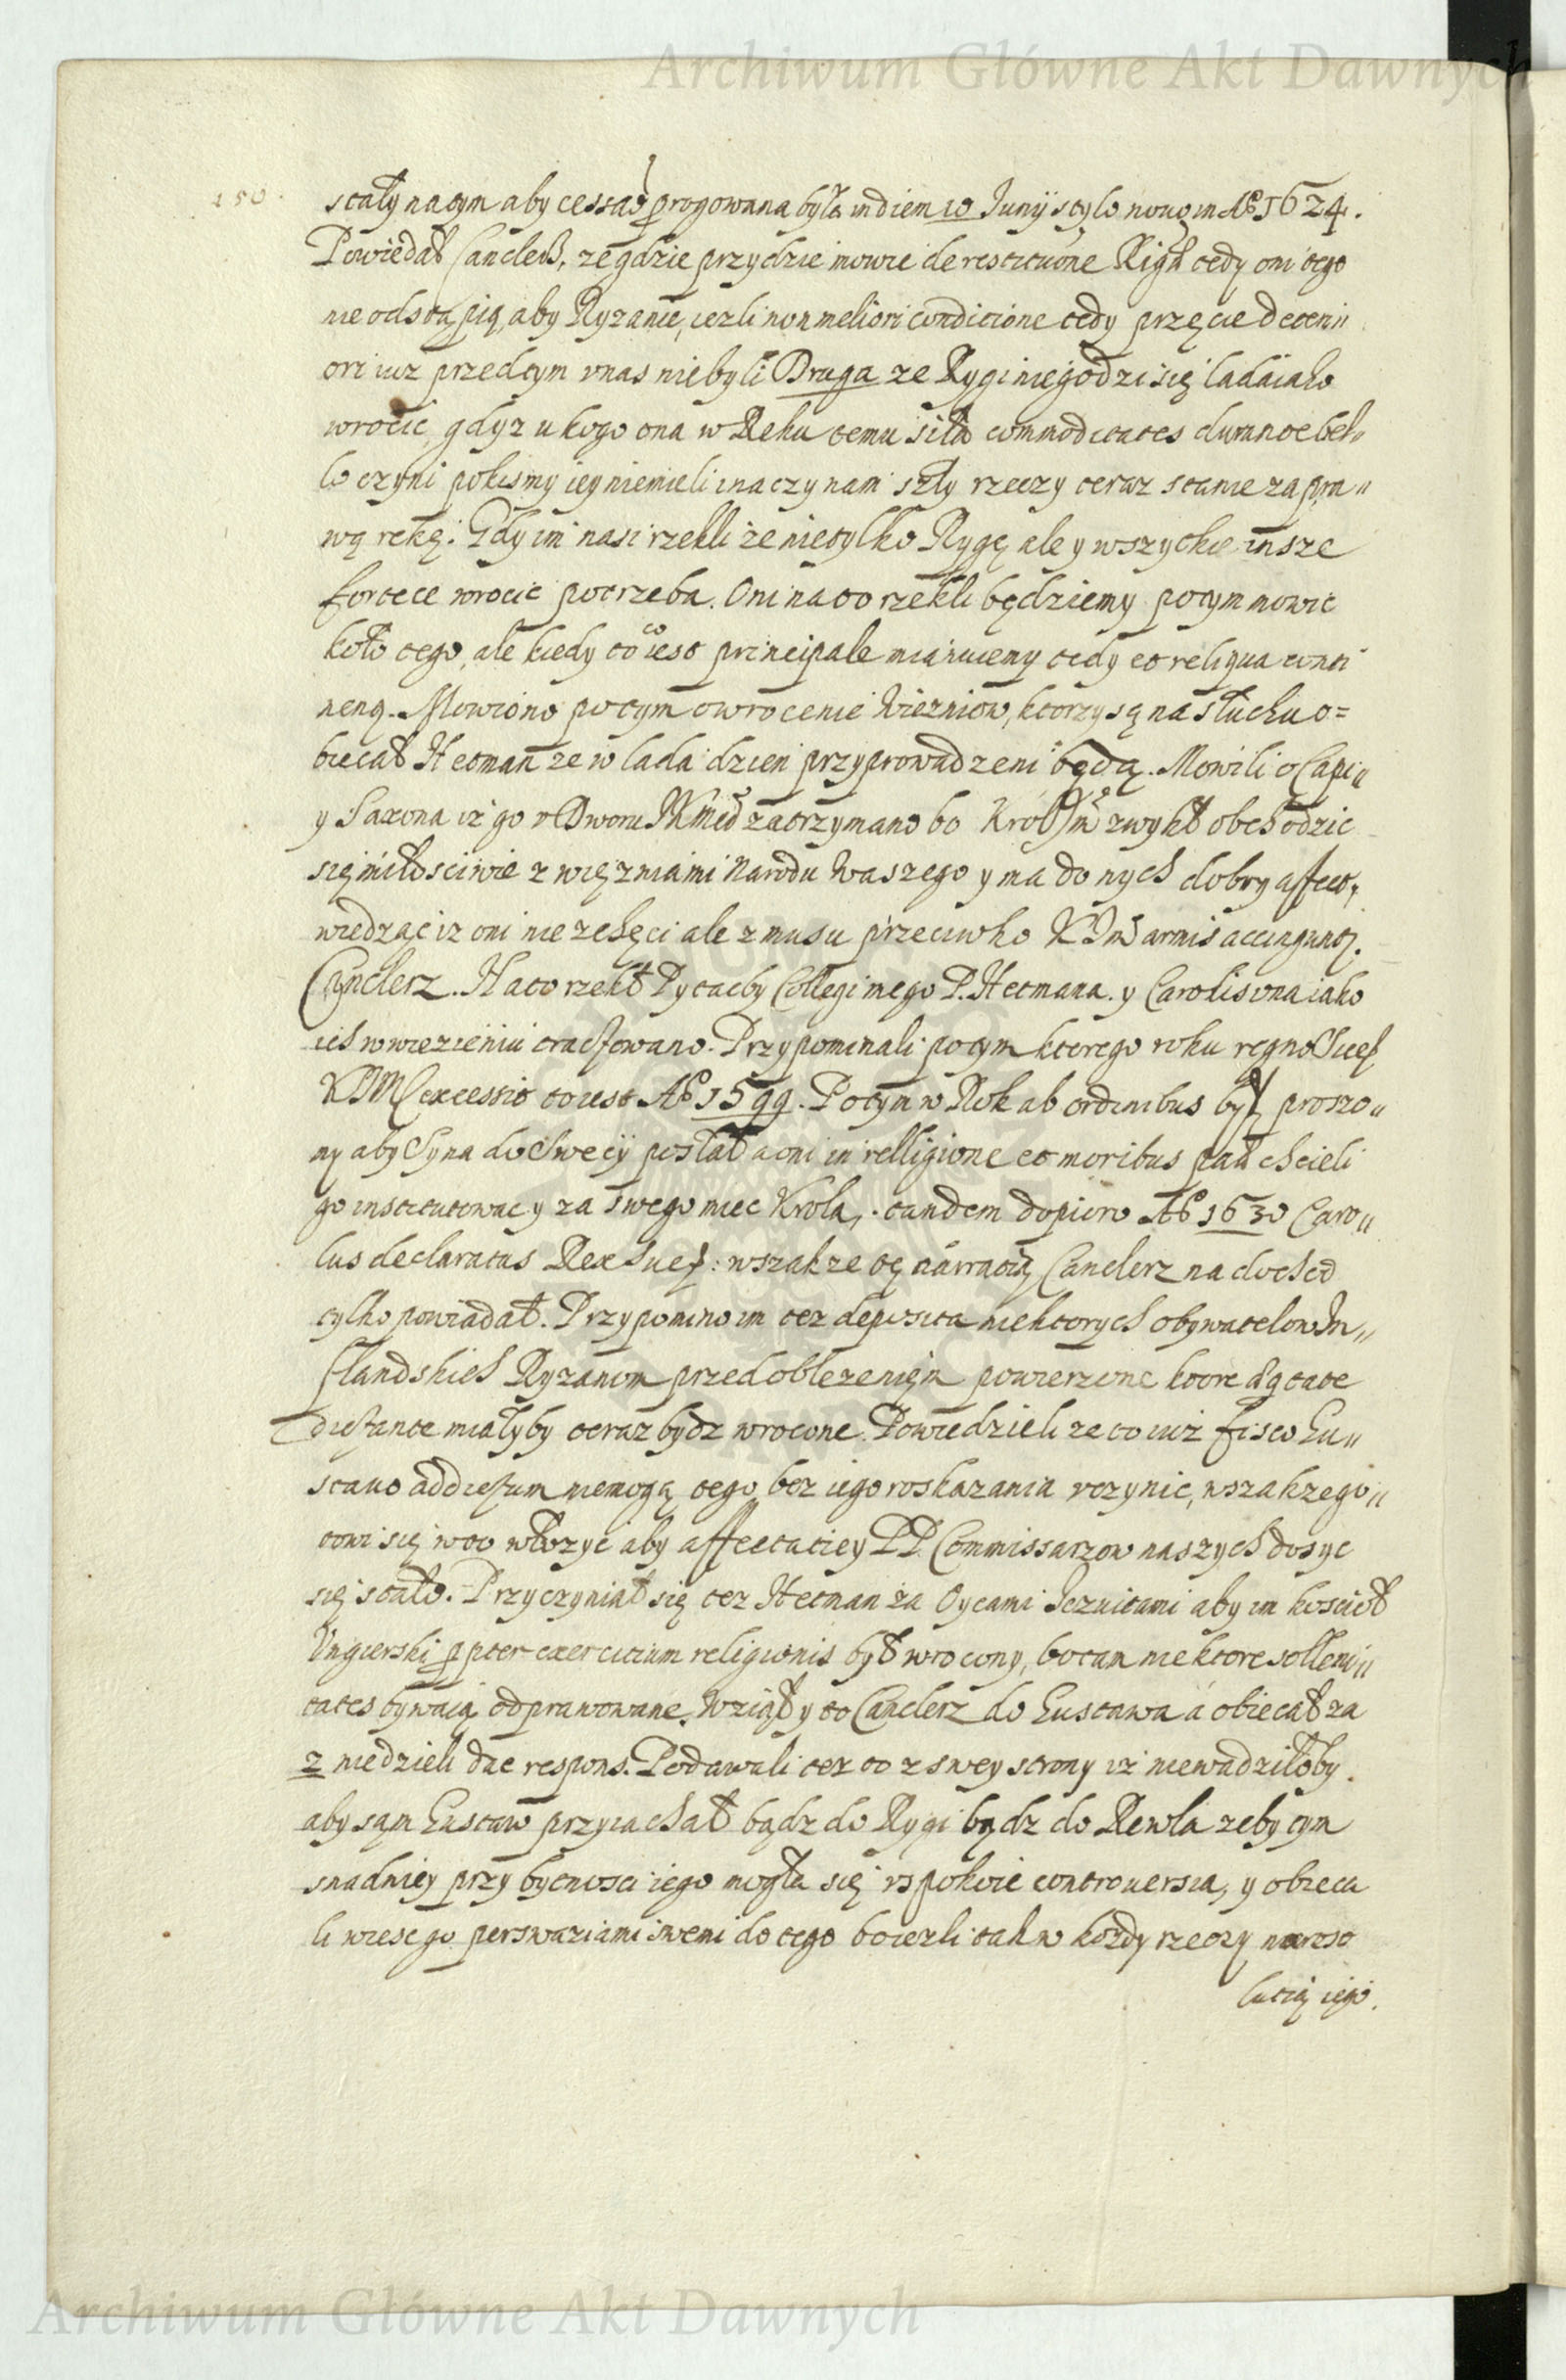 Archiwum Główne Akt Dawnych
150.
stały na tym aby cessao prorogowana była in diem 10 Junij stylo novo in Ao 1624.
Powiedał Canclerz, ze gdzie przydzie mowic de restitutione Rigae tedy oni tego
nie odstąpią, aby Ryzanie, iezli non meliori conditione tedy przęcie deteri„
ori iuz przedtym v nas nie byli Druga ze Rygi nie godzi się ladaiako
wrocic, gdyz u kogo ona w Reku temu siła commoditates durante bel„
lo czyni pokismy iey niemieli inaczy nam szły rzeczy teraz stanie za pra„
wą rekę. Gdy im nasi rzekli ze nie tylko Rygę ale y wszytkie insze
fortece wrocic potrzeba. Oni na to rzekli będziemy potym mowic
koło tego, ale kiedy to co iest principale mianuiemy tedy et reliqua conti
nenq. Mowiono potym o wrocenie Wiezniow, ktorzy są na słuchu o=
biecał Hetman ze w lada dzien przyprowadzeni będą. Mowili o Capi„
y Saxona iz go v Dworu JKMci zatrzymano bo Krol Jm zwykł obchodzic
się miłosciwie z więzniami Narodu Waszego y ma do nych dobry affect,
wiedząc iz oni nie zchęci ale z musu przeciwko KJm armis accingunt.
Canclerz. Na to rzekł Pytacby Collegi mego P. Hetmana y Carolisona iako
ich w wiezieniu tractowano. Przypominali potym ktorego roku regno Suet
KJM excessit to iest Ao 1599. Potym w Rok ab ordinibus był proszo„
ny aby Syna do Swecij posłał a oni in relligione et moribus pat chcieli
go institutowac y za swego miec Krola, tandem dopiero Ao 1630 Caro„
lus declaratus Rex Suet: wszakze tę narratią Canclerz na dochod
tylko powiadał. Przypomino im tez deposita niektorych obywatelow In„
flandskich Ryzanom przed oblezenięm powierzone ktore aqtate
dictante miałyby teraz bydz wrocone. Powiedzieli ze to iuz fisco Gu„
stavo addictum niemogą tego bez iego roskazania vczynic, wszakze go„
towi się w to włozyc aby affectatiey PP. Commissarzow naszych dosyc
się stało. Przyczyniał się tez Hetman za Oycami Jezuitami aby im koscioł
Ungierski propter exercitium religionis był wrocony, bo tam niektore solleni„
tates bywaią odprawowane. Wziął y to Canclerz do Gustawa a obiecał za
2 niedzieli dac respons. Podawali tez to z swey strony iz niewadziłoby
aby sąm Gustaw przyiachał bądz do Rygi bądz do Rewla zeby tym
snadniey przy bytnosci iego mogła się vspokoic controversia, y obieca
li wiesc go perswaziami swemi do tego bo iezli tak w kozdy rzeczy na reso
lutią iego.
Archiwum Główne Akt Dawnych